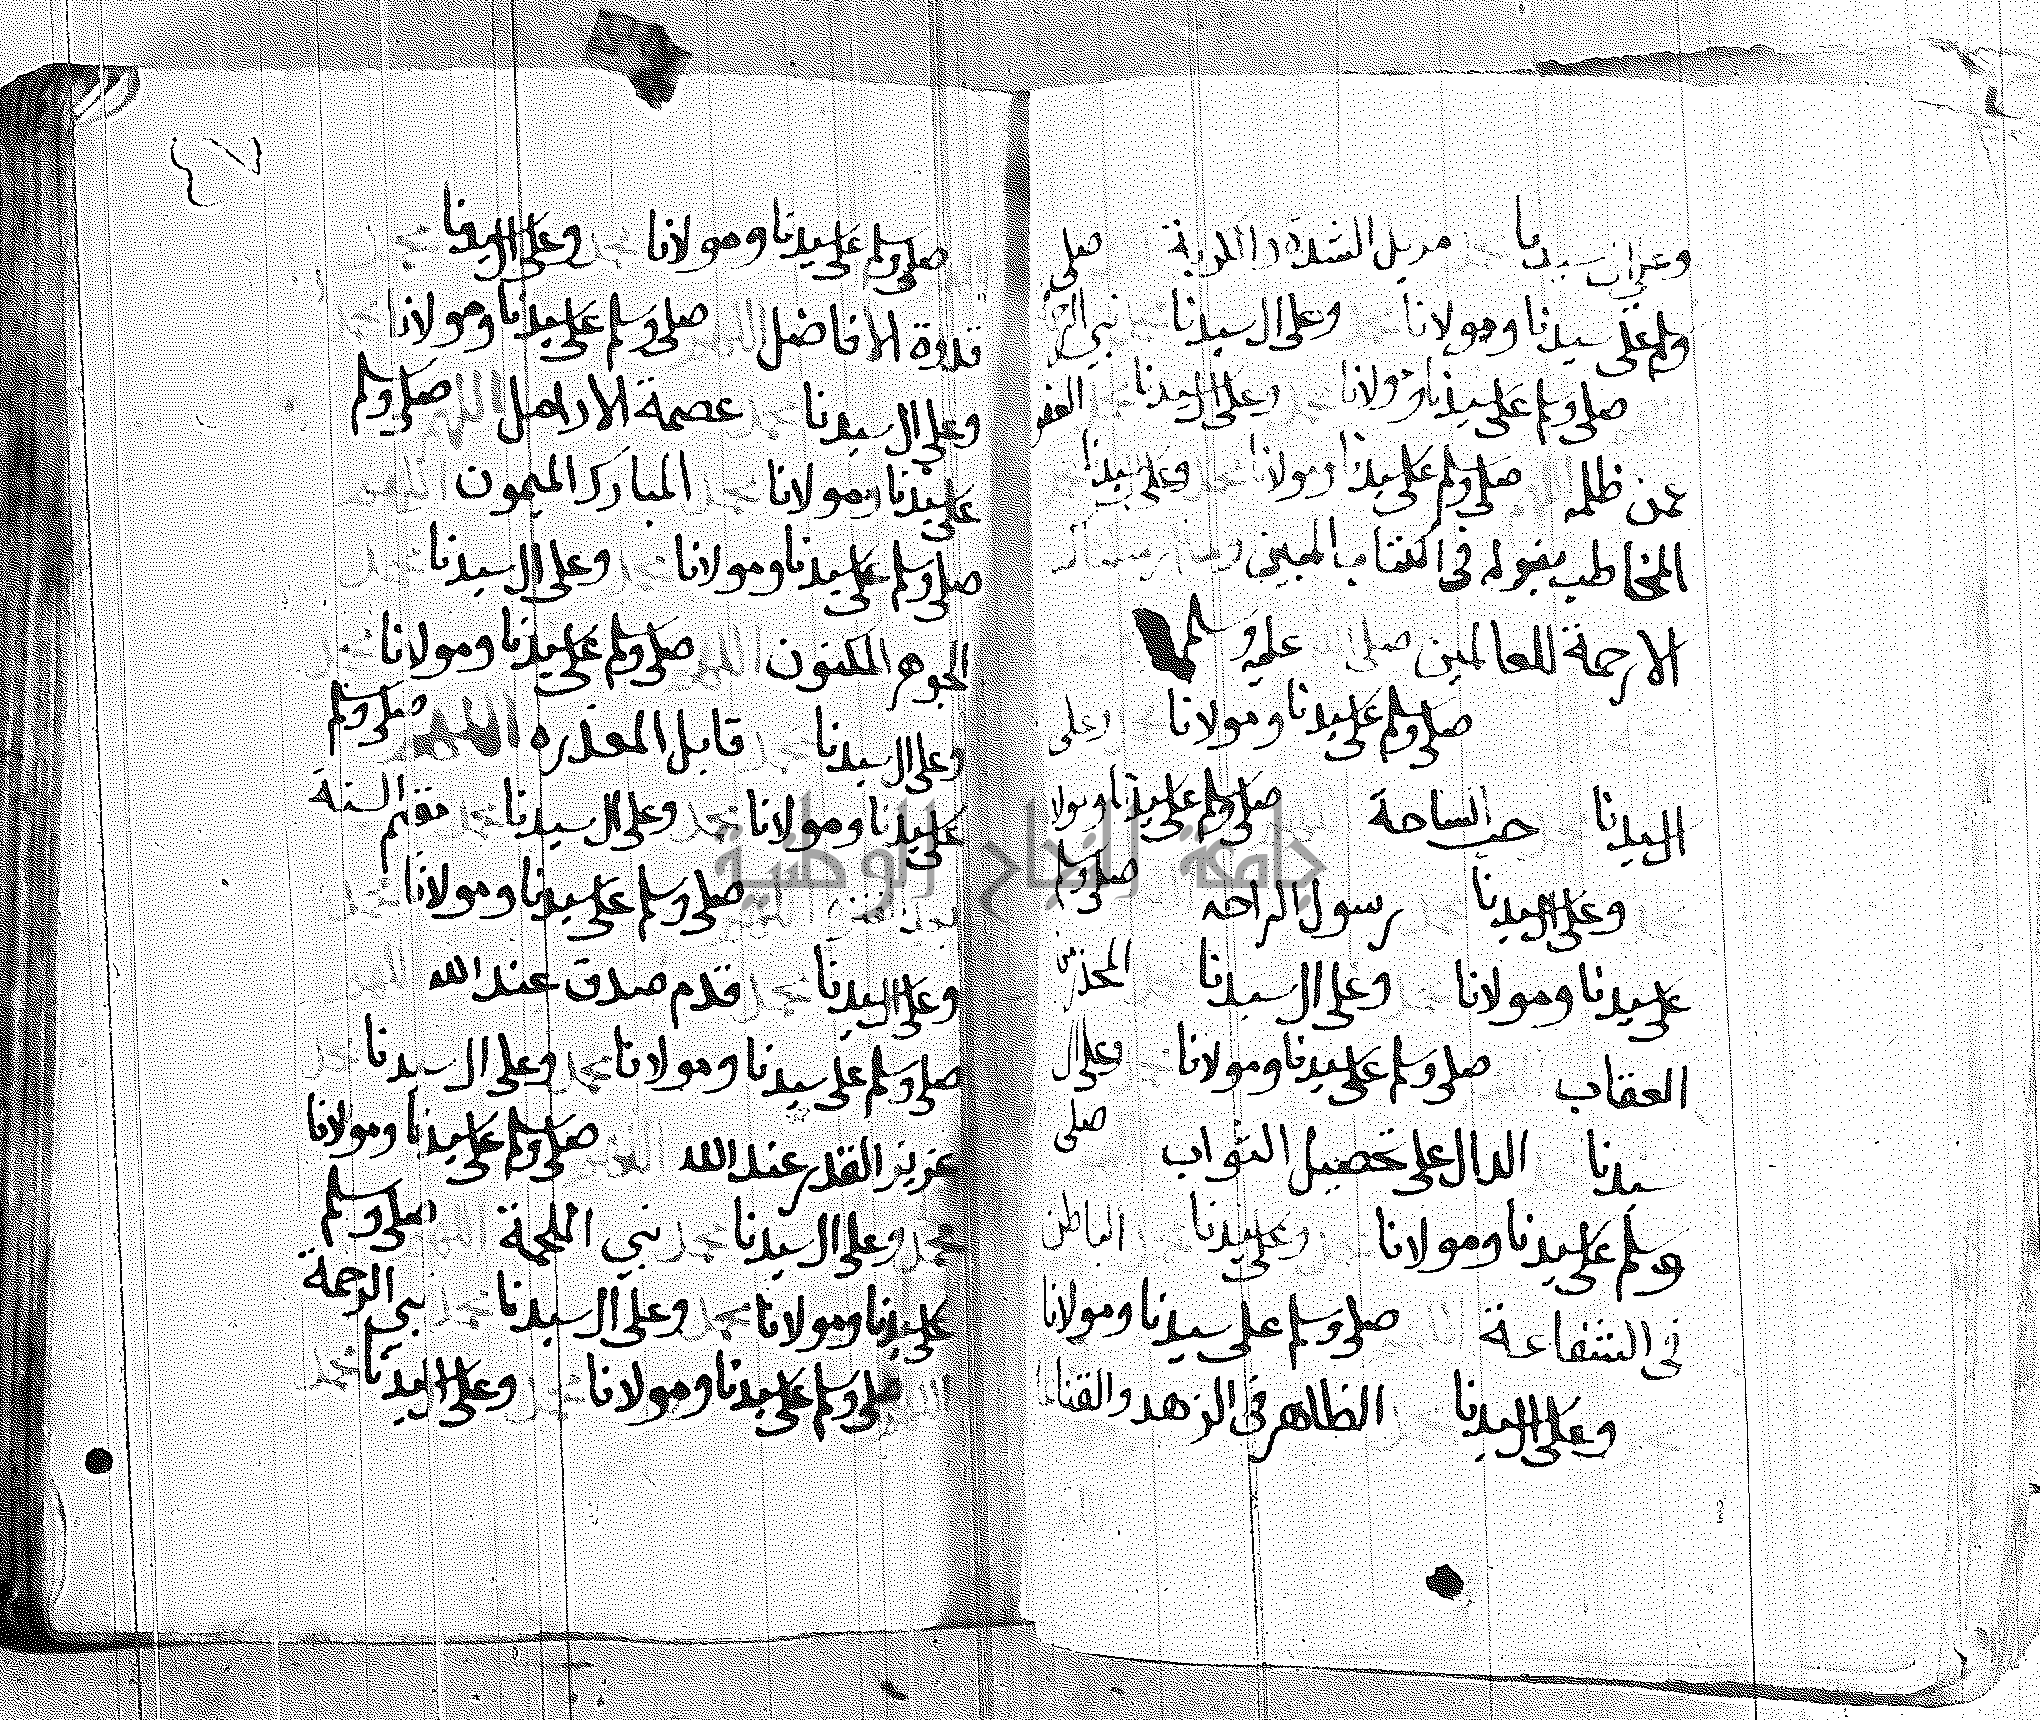 وعلى ال سيدنا مزيل الشدة والكربة صلى
وسلم على سيدنا ومولانا وعلى ال سيدنا نبي
صلى وسلم على سيدنا ومولانا وعلى ال سيدنا العفو
عمن ظلمه صلى وسلم على سيدنا ومولانا وعلى سيدنا
المخاطب بقوله في الكتاب المبين
الا رحمة للعالمين صلى عليه وسلم
صلى وسلم على سيدنا ومولانا وعلى
ال سيدنا رحب الساحة صلى وسلم على سيدنا ومولانا
وعلى ال سيدنا رسول الراحه صلى وسلم
على سيدنا ومولانا وعلى ال سيدنا المحذر من
العقاب صلى وسلم على سيدنا ومولانا وعلى ال
سيدنا الدال على تحصيل الثواب صلى
وسلم على سيدنا ومولانا وعلى سيدنا الباطن
في الشفاعة صلى وسلم على سيدنا ومولانا
وعلى ال سيدنا الظاهر في الزهد والقنا
صلى وسلم على سيدنا ومولانا وعلى ال سيدنا
قدوة الافاضل صلى وسلم على سيدنا ومولانا
وعلى ال سيدنا محمد عصمة الارامل اللهم صلى وسلم
على سيدنا ومولانا محمد المبارك الميمون
صلى وسلم على سيدنا ومولانا محمد وعلى ال سيدنا
الجوهر المكنون اللهم صلى وسلم على سيدنا ومولانا
وعلى ال سيدنا محمد قابل المعذره اللهم صلى وسلم
على سيدنا ومولانا محمد وعلى ال سيدنا محمد مقيم السنة
صلى وسلم على سيدنا ومولانا
وعلى ال سيدنا محمد قدم صدق عند الله
صلى وسلم على سيدنا ومولانا محمد وعلى ال سيدنا
عزيز القدر عند الله اللهم صلى وسلم على سيدنا ومولانا
محمد وعلى ال سيدنا محمد نبي الملحمة صلى وسلم
على سيدنا ومولانا محمد وعلى ال سيدنا محمد نبي الرحمة
صلى وسلم على سيدنا ومولانا محمد وعلى ال سيدنا محمد
جامعة النجاح الوطنية